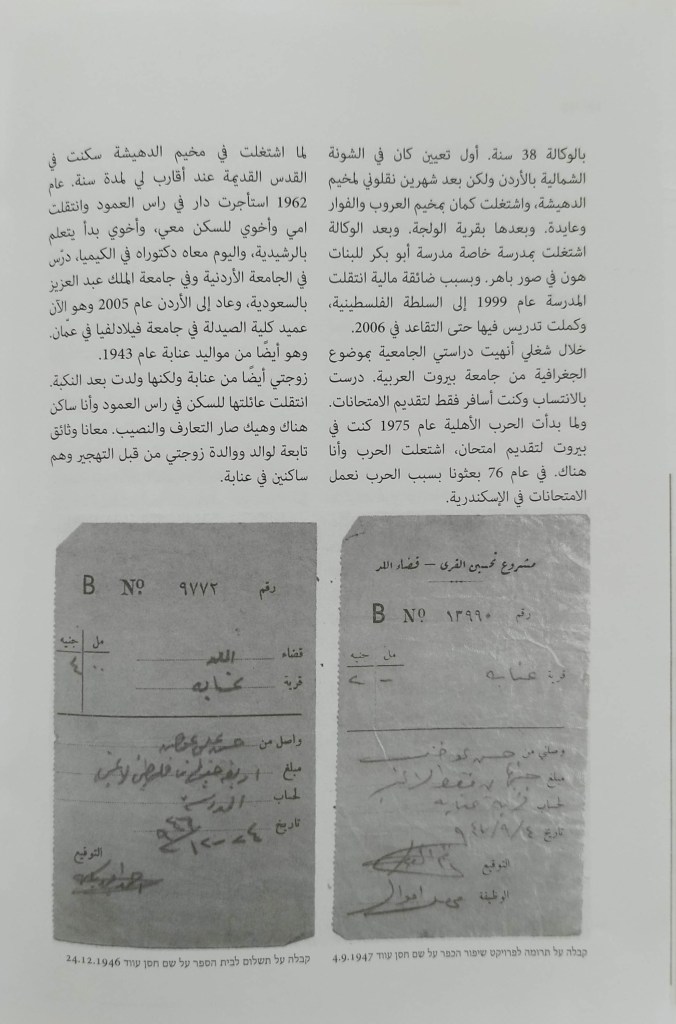 بالوكالة 38 سنة. أول تعيين كان في الشونة
الشمالية بالأردن ولكن بعد شهرين نقلوني لمخيم
الدهيشة، واشتغلت كمان بمخيم العروب والفوار
وعايدة. وبعدها بقرية الولجة. وبعد الوكالة
اشتغلت بمدرسة خاصة مدرسة أبو بكر للبنات
هون في صور باهر. وبسبب ضائقة مالية انتقلت
المدرسة عام 1999 إلى السلطة الفلسطينية،
وكملت تدريس فيها حتى التقاعد في 2006.
خلال شغلي أنهيت دراستي الجامعية بموضوع
الجغرافية من جامعة بيروت العربية. درست
بالانتساب وكنت أسافر فقط لتقديم الامتحانات.
ولما بدأت الحرب الأهلية عام 1975 كنت في
بيروت لتقديم امتحان، اشتعلت الحرب وأنا
هناك. في عام 76 بعثونا بسبب الحرب نعمل
الامتحانات في الإسكندرية.
لما اشتغلت في مخيم الدهيشة سكنت في
القدس القديمة عند أقارب لي لمدة سنة. عام
1962 استأجرت دار في راس العمود وانتقلت
امي وأخوي للسكن معي، وأخوي بدأ يتعلم
بالرشيدية، واليوم معاه دكتوراه في الكيميا، درّس
في الجامعة الأردنية وفي جامعة الملك عبد العزيز
بالسعودية، وعاد إلى الأردن عام 2005 وهو الآن
عميد كلية الصيدلة في جامعة فيلادلفيا في عمّان.
وهو أيضًا من مواليد عنابة عام 1943.
زوجتي أيضًا من عنابة ولكنها ولدت بعد النكبة.
انتقلت عائلتها للسكن في راس العمود وأنا ساكن
هناك وهيك صار التعارف والنصيب. معانا وثائق
تابعة لوالد ووالدة زوجتي من قبل التهجير وهم
ساكنين في عنابة.
مشروع تحسين القرى — قضاء اللد
رقم ١٣٩٩٠ B Nº
مل جنيه
– ٢
قرية عنابه
وصلني من حسن
مبلغ
لحساب قرية عنابه
تاريخ ٤/٩/٩٤٧
التوقيع
الوظيفة
קבלה על תרומה לפרויקט שיפור הכפר על שם חסן עווד 4.9.1947
رقم ٩٧٧٢ B Nº
مل جنيه
٠٠ ٤
قضاء اللد
قرية عنابه
واصل من حسن
مبلغ
لحساب المدرسة
تاريخ ٢٤-١٢/٩٤٦
التوقيع
קבלה על תשלום לבית הספר על שם חסן עווד 24.12.1946